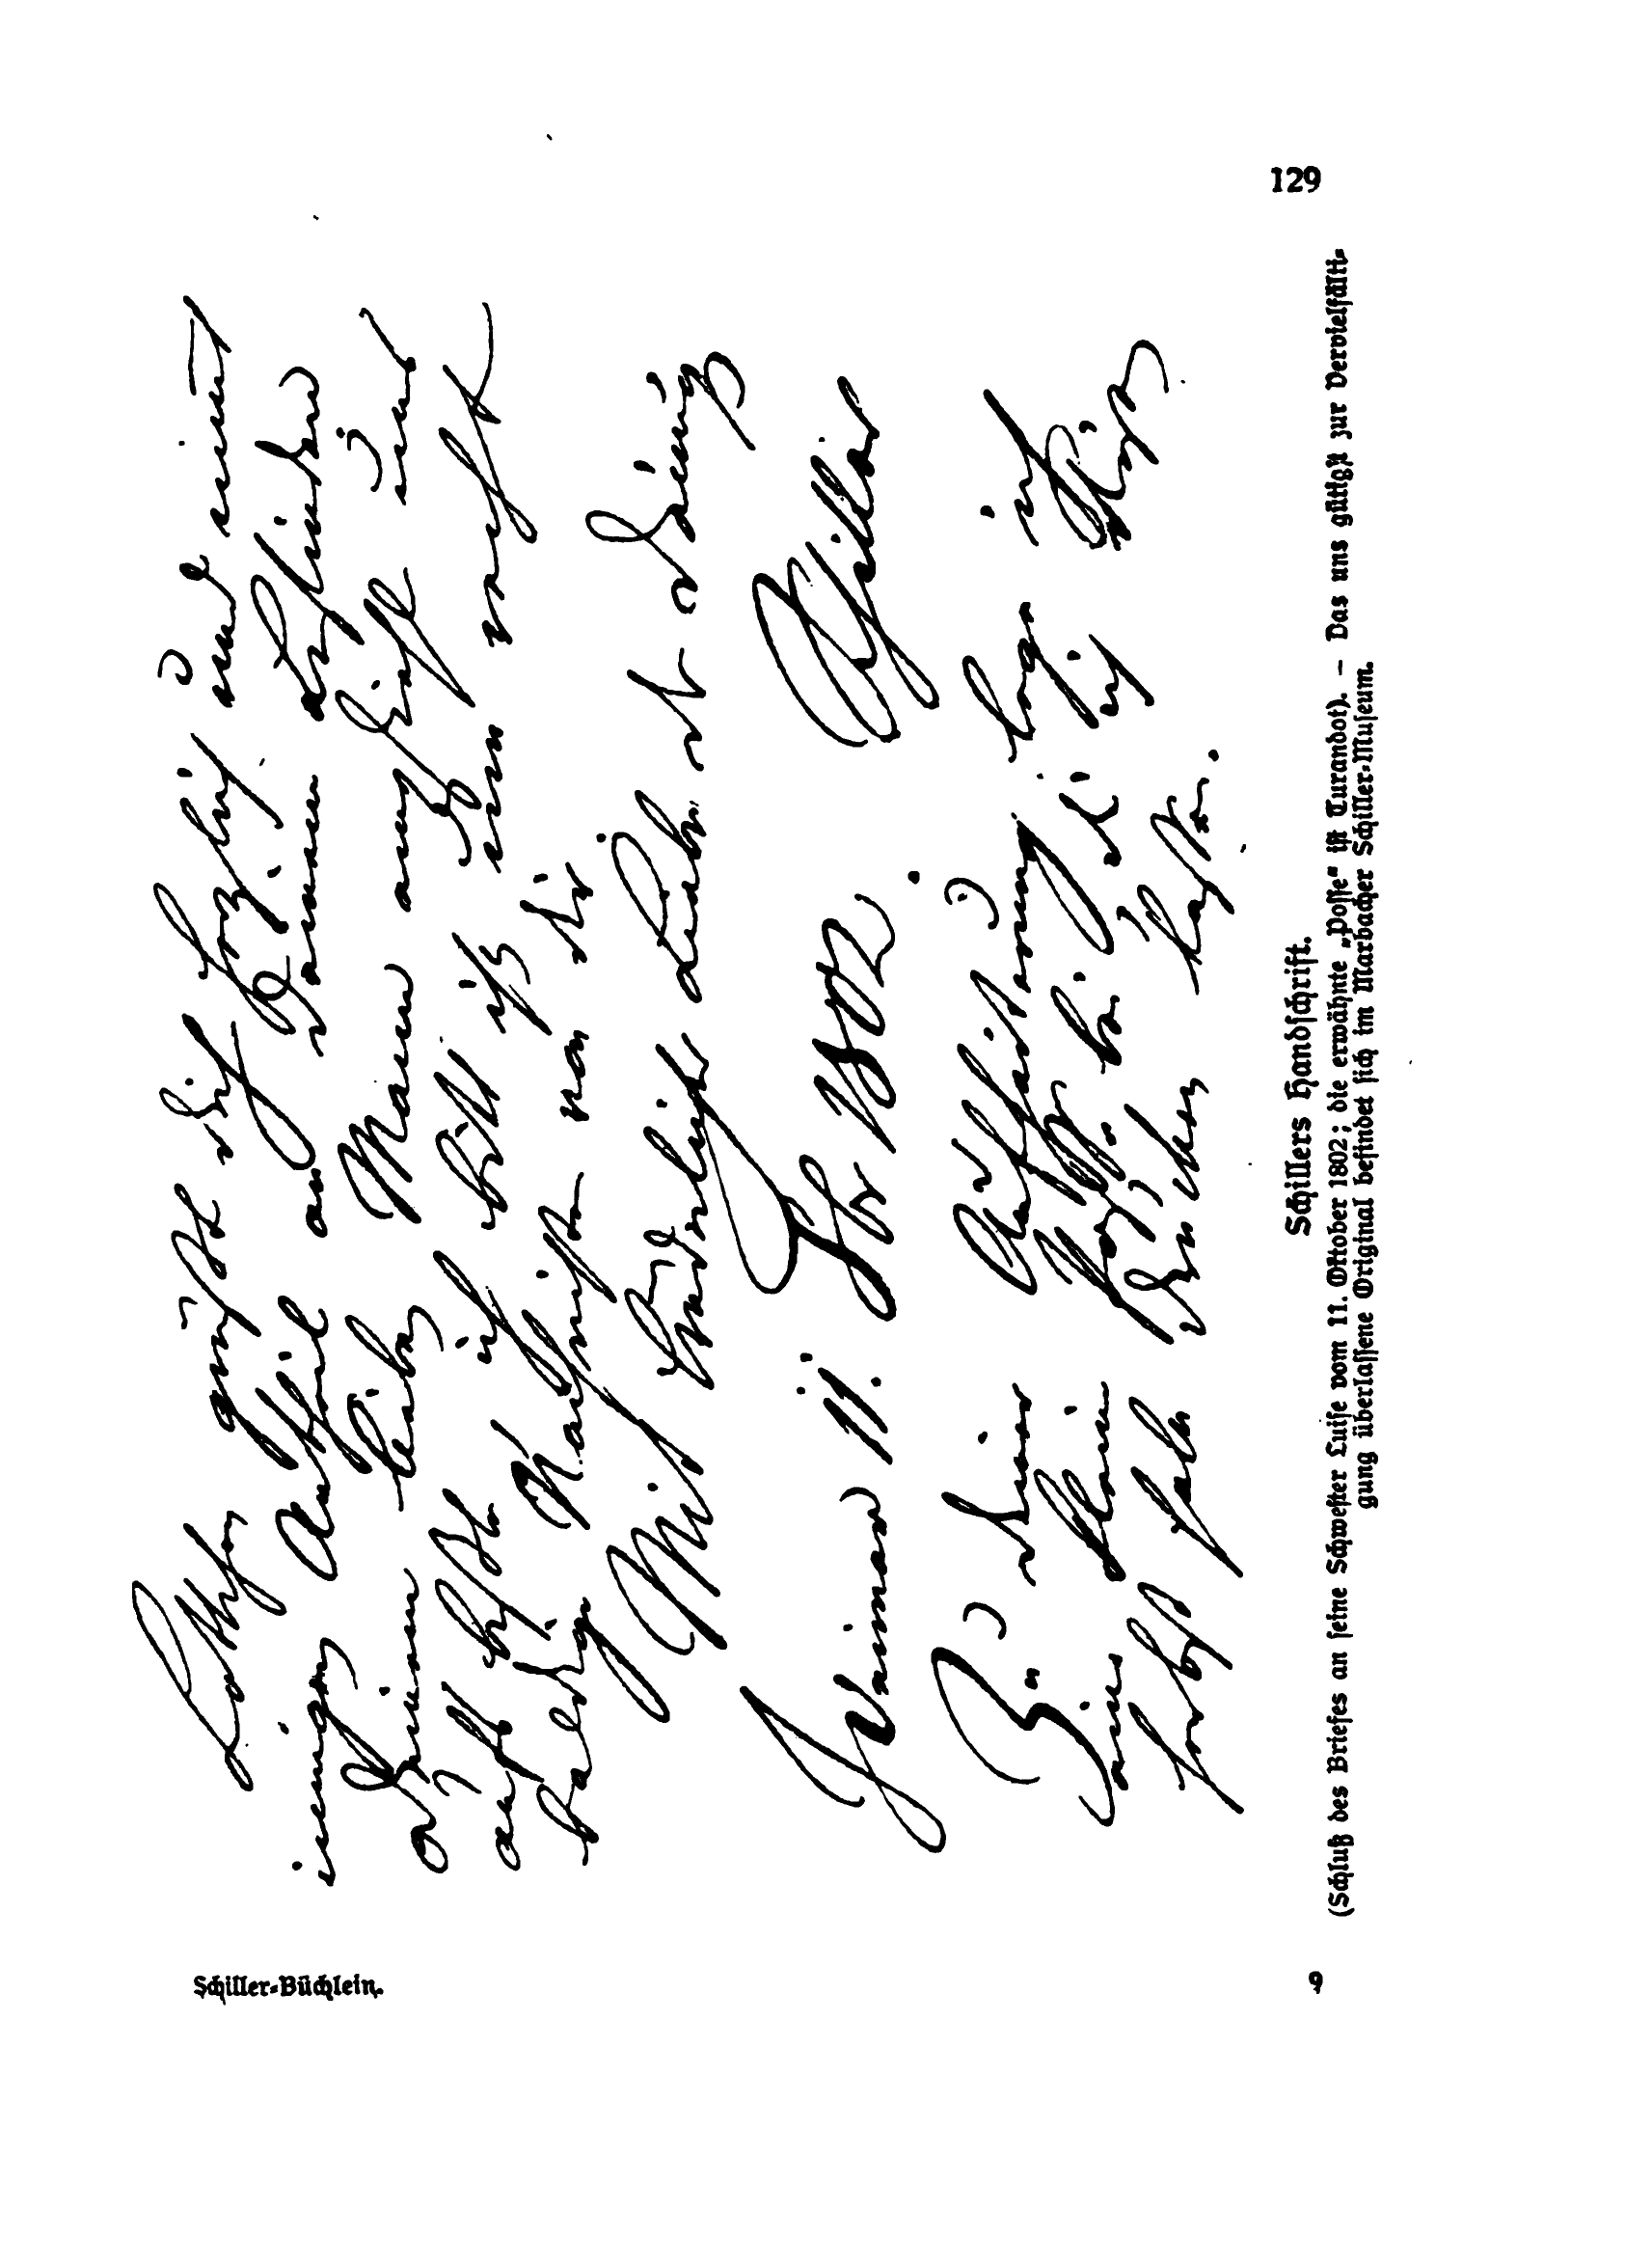 Lottchen grüßt dich herzlich und nimmt
innigen Antheil an
Deinen lieben Mann grüße
aufs beste ich bitte ihn recht
baldige Nachricht von dir
Mit brüderlicher Liebe der Deinige
Weimar 11. 8br 1802. Schiller
Zu Deiner Aufheiterung lege ich
eine kleine Posse bei, die ich
habe drucken lassen.
Schillers Handschrift.
(Schluß des Briefes an seine Schwester Luise vom 11. Oktober 1802; die erwähnte „Posse“ ist Turandot). – Das uns gütigst zur Vervielfälti-
gung überlassene Original befindet sich im Marbacher Schiller-Museum.
Schiller-Büchlein.
9
129